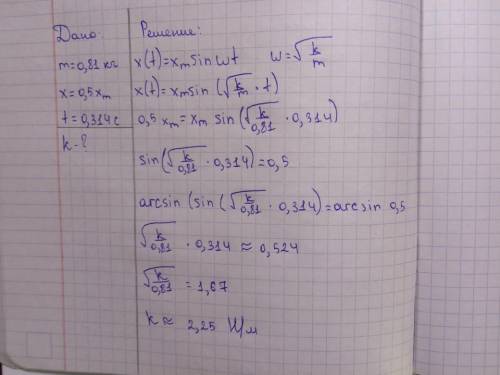 Дано:
m=0,81 кг
x=0,5xₘ
t=0,314 c
k-?
Решение:
x(t)=xₘ sin ωt    ω=√(k/m)
x(t)=xₘ sin (√(k/m) · t)
0,5 xₘ=xₘ sin (√(k/0,81) · 0,314)
sin(√(k/0,81) · 0,314)=0,5
arcsin (sin (√(k/0,81) · 0,314)=arcsin 0,5
√(k/0,81) · 0,314 ≈ 0,524
√(k/0,81) = 1,67
k ≈ 2,25 Н/м